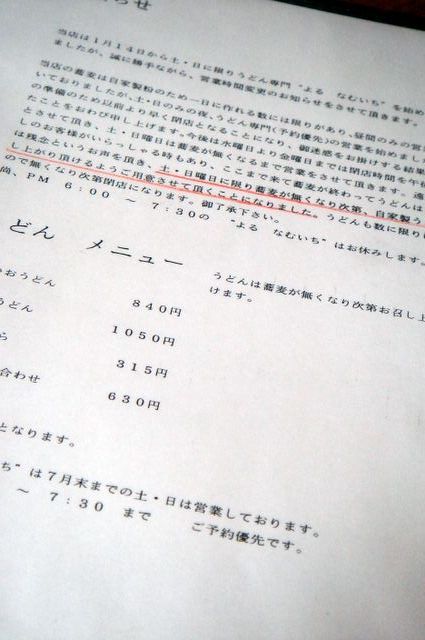 らせ
当店は1月14日から土・日に限りうどん専門“よる なむいち”を始め
ましたが、誠に勝手ながら、営業時間変更のお知らせをさせて頂きます。
当店の蕎麦は自家製粉のため一日に作れる数には限りがあり、昼間のみの営
いておりましたが、土・日のみの夜、うどん専門(予約優先)の営業を始めまし
の準備のため以前より早く閉店となることになり、御迷惑をお掛けする結
たことをおわび申し上げます。今後は水曜日より金曜日までは閉店時間を午
とさせて頂き、土・日曜日は蕎麦が無くなるまで営業をさせて頂きます。遠
しのお客様がいらっしゃる時もあり、ここまで来て蕎麦が終わってうどんは
は残念というお声を頂き、土・日曜日に限り蕎麦が無くなり次第、自家製う
し上がり頂けるようご用意させて頂くことになりました。うどんも数に限り
ので無くなり次第閉店になります。御了承下さい。
尚、PM 6:00 〜 7:30の “よる なむいち”はお休みします。
どん メニュー
うどんは蕎麦が無くなり次第お召し上
けます。
おうどん 840円
うどん 1050円
ら 315円
合わせ 630円
となります。
ち”は7月末までの土・日は営業しております。
〜 7:30 まで ご予約優先です。